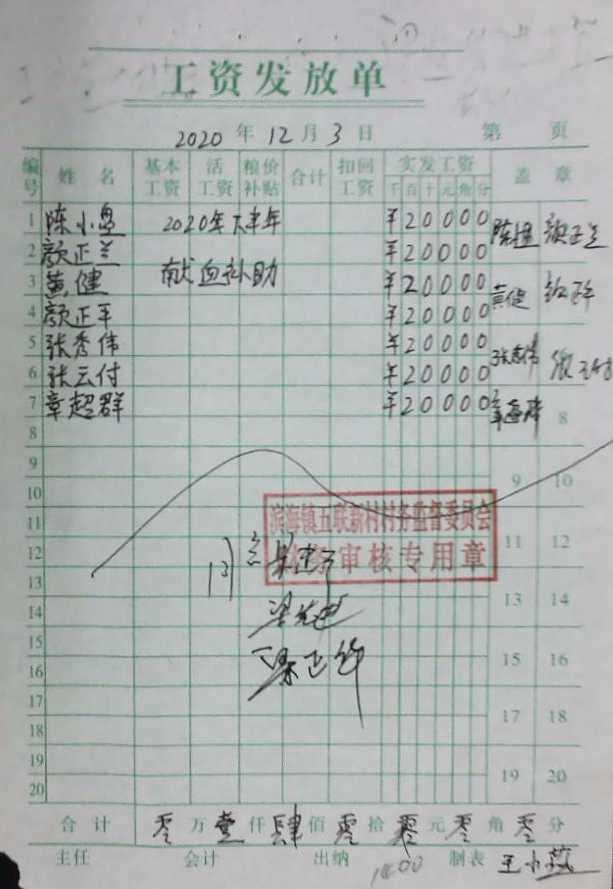 工资发放单
2020年12月3日 第 页
编号 姓名 基本工资 活工资 粮价补贴 合计 扣回工资 实发工资 盖章
千 百 十 元 角 分
1 陈小 2020年下半年 ¥20000
2 颜正兰 ¥20000
3 黄健 献血补助 ¥20000 黄健
4 颜正平 ¥20000
5 张秀伟 ¥20000 张秀伟
6 张云付 ¥20000
7 章超群 ¥20000
8 8
9
10 9 10
滨海镇五联新村村务监督委员会
11
审核专用章
12 11 12
13
14 13 14
15
16 15 16
17
18 17 18
19
20 19 20
合计 零万壹仟肆佰零拾零元零角零分
主任 会计 出纳 1400 制表 王小燕